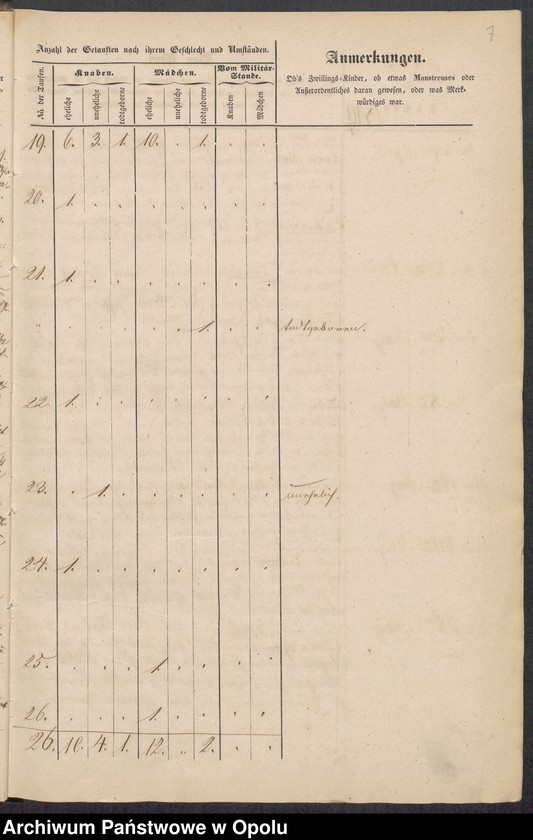 7
Anzahl der Getauften nach ihrem Geschlecht und Umständen.
Anmerkungen.
Ob's Zwillings-Kinder, ob etwas Monstreuses oder
Außerordentliches daran gewesen, oder was Merk-
würdiges war.
No der Taufen.
Knaben.
Mädchen.
Vom Militär-
Stande.
eheliche
uneheliche
todtgeborne
eheliche
uneheliche
todtgeborne
Knaben
Mädchen
19. 6. 3. 1. 10. . 1. . .
20. 1. . . . . . . .
21. 1. . . . . . . .
" . . . . . 1. . . todtgeboren.
22. 1. . . . . . . .
23. . 1. . . . . . . unehelich.
24. 1. . . . . . . .
25. . . . 1. . . . .
26. . . . 1. . . . .
26. 10. 4. 1. 12. .. 2. . .
Archiwum Państwowe w Opolu